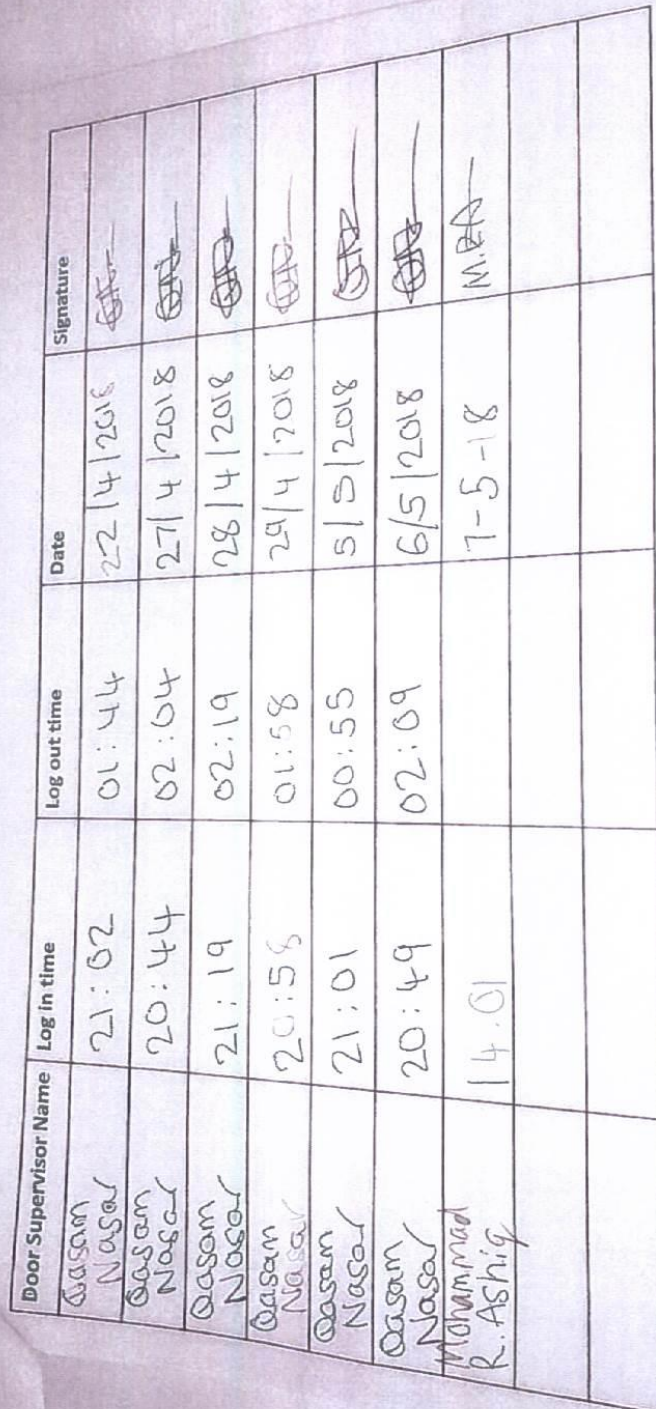 Door Supervisor Name Log in time Log out time Date Signature
Qasam Nasar 21:02 01:44 22/4/2018
Qasam Nasar 20:44 02:04 27/4/2018
Qasam Nasar 21:19 02:19 28/4/2018
Qasam Nasar 20:58 01:58 29/4/2018
Qasam Nasar 21:01 00:55 5/5/2018
Qasam Nasar 20:49 02:09 6/5/2018
Mohammad R. Ashiq 14.01 7-5-18 M.RA